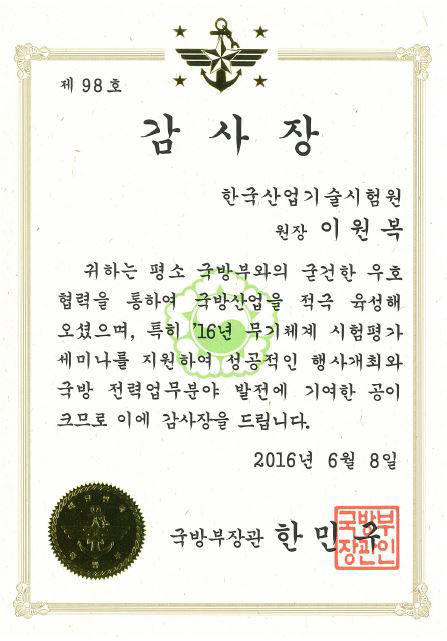 제 98호
감사장
한국산업기술시험원
원장 이원복
귀하는 평소 국방부와의 굳건한 우호
협력을 통하여 국방산업을 적극 육성해
오셨으며, 특히 '16년 무기체계 시험평가
세미나를 지원하여 성공적인 행사개최와
국방 전력업무분야 발전에 기여한 공이
크므로 이에 감사장을 드립니다.
2016년 6월 8일
국방부장관 한민구
국방부
장관인